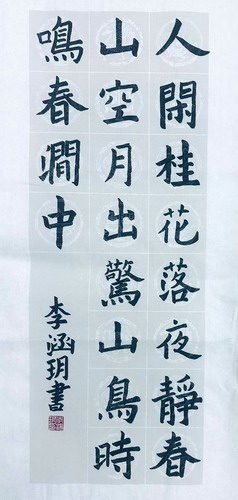 人閑桂花落夜靜春
山空月出驚山鳥時
鳴春澗中
李涵玥書